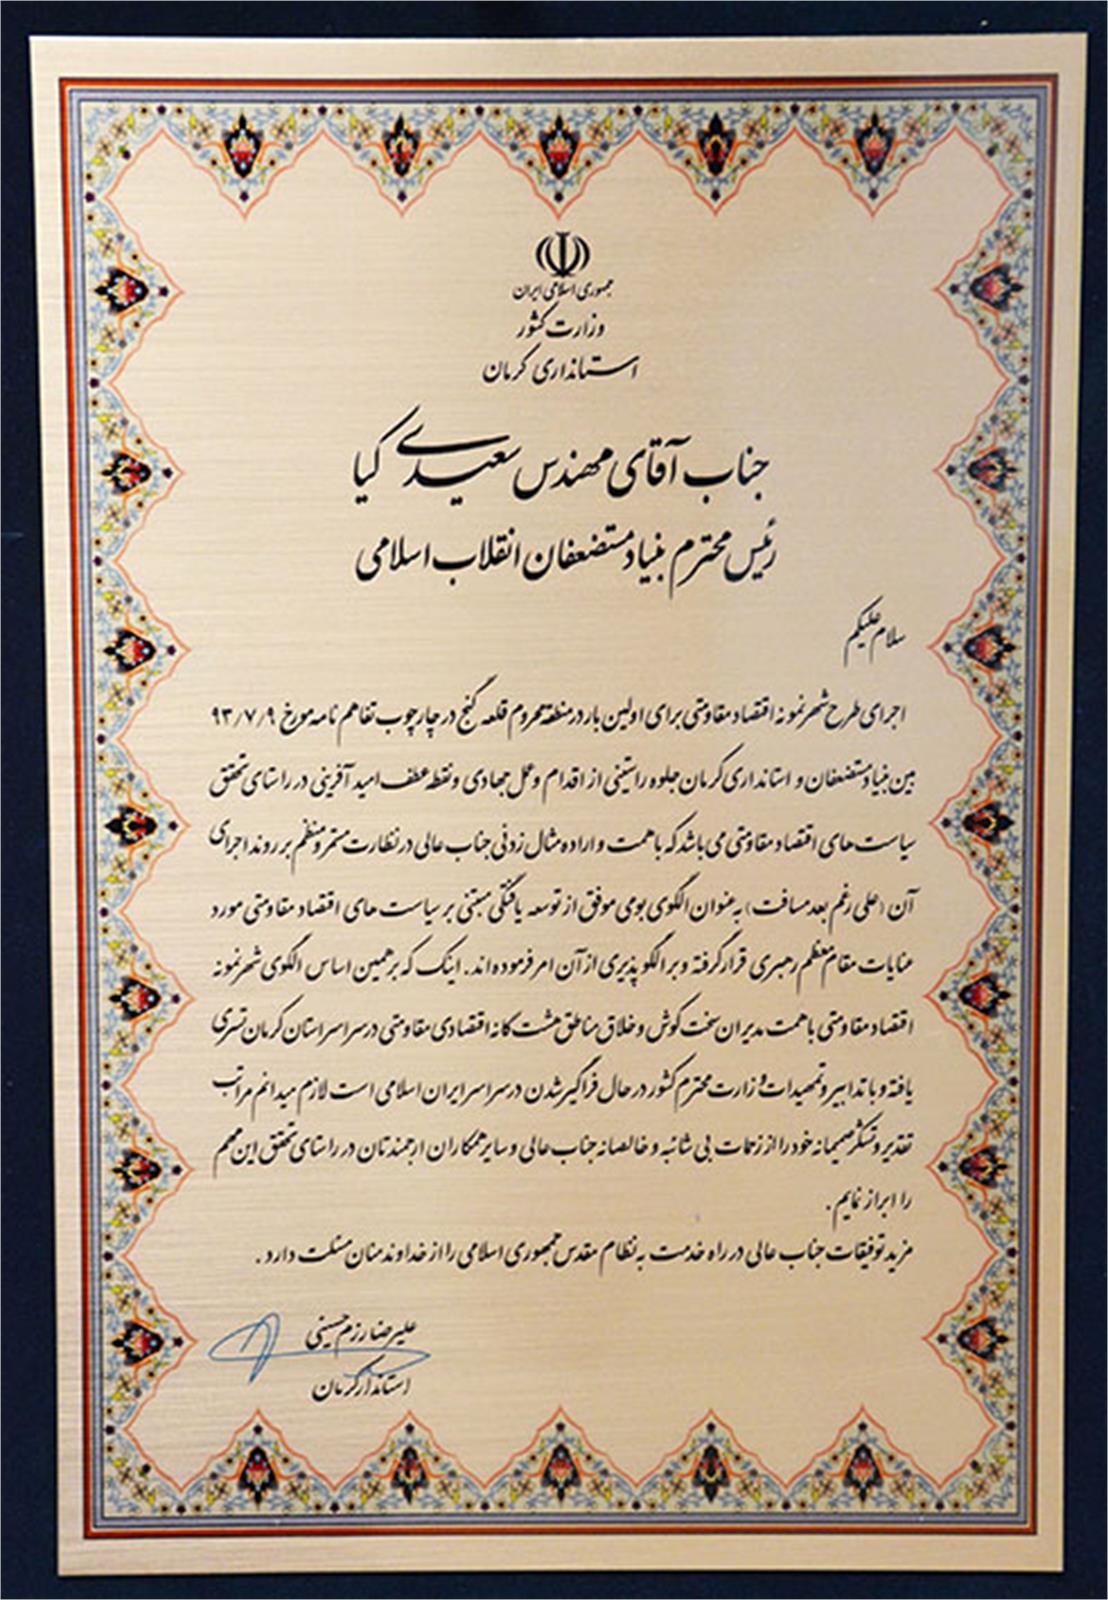 جمهوری اسلامی ایران
وزارت کشور
استانداری کرمان
جناب آقای مهندس سعیدی کیا
رئیس محترم بنیاد مستضعفان انقلاب اسلامی
سلام علیکم
اجرای طرح شهر نمونه اقتصاد مقاومتی برای اولین بار در منطقه محروم قلعه گنج در چارچوب تفاهم نامه مورخ ۹۳/۷/۹
بین بنیاد مستضعفان و استانداری کرمان جلوه راستینی از اقدام و عمل جهادی و نقطه عطف امید آفرینی در راستای تحقق
سیاست های اقتصاد مقاومتی می باشد که با همت و اراده مثال زدنی جناب عالی در نظارت مستمر و منظم بر روند اجرای
آن (علی رغم بعد مسافت) به عنوان الگوی بومی موفق از توسعه یافتگی مبتنی بر سیاست های اقتصاد مقاومتی مورد
عنایات مقام معظم رهبری قرار گرفته و بر الگو پذیری از آن امر فرموده اند. اینک که بر همین اساس الگوی شهر نمونه
اقتصاد مقاومتی با همت مدیران سخت کوش و خلاق مناطق هشت گانه اقتصادی مقاومتی در سراسر استان کرمان تسری
یافته و با تدابیر و تمهیدات وزارت محترم کشور در حال فراگیر شدن در سراسر ایران اسلامی است لازم میدانم مراتب
تقدیر و تشکر صمیمانه خود را از زحمات بی شائبه و خالصانه جناب عالی و سایر همکاران ارجمندتان در راستای تحقق این مهم
را ابراز نمایم.
مزید توفیقات جناب عالی در راه خدمت به نظام مقدس جمهوری اسلامی را از خداوند منان مسئلت دارد.
علیرضا رزم حسینی
استاندار کرمان